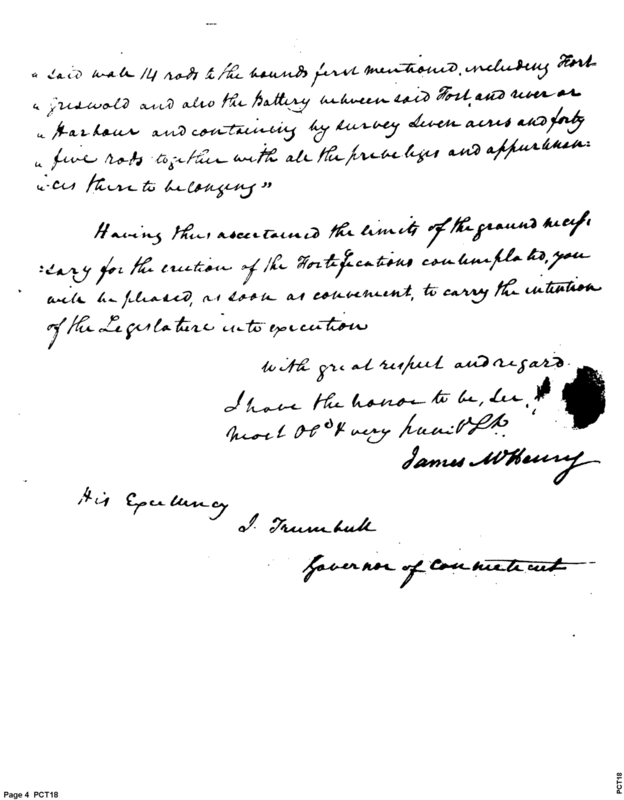 " said wall 14 rods to the bounds first mentioned, including Fort
" Griswold and also the Battery between said Fort and river or
" Harbour and containing by survey Seven acres and forty
" five rods together with all the priveliges and appurtenan:
" ces there to belonging"
Having thus ascertained the limits of the ground neces
:sary for the erection of the Fortifications contemplated, you
will be pleased, as soon as convenient, to carry the intention
of the Legislature into execution
With great respect and regard.
I have the honor to be, Sir,
most Obd & very
James McHenry
His Excellency
J. Trumbull
Governor of Connecticut
Page 4 PCT18
PCT18